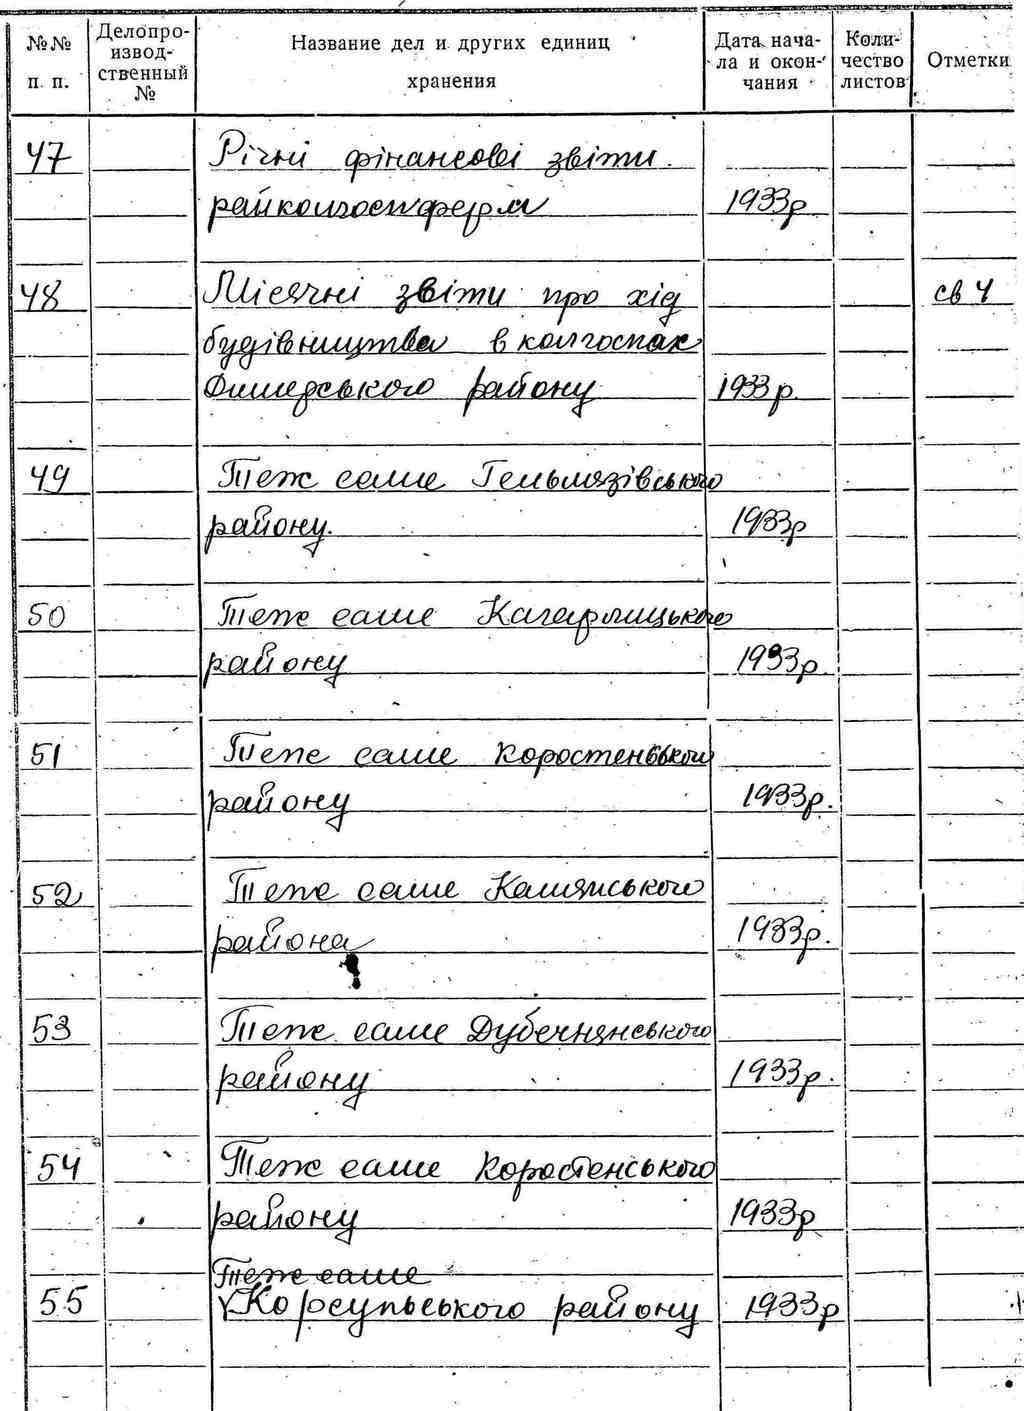 №№ п. п.
Делопро-
извод-
ственный
№
Название дел и других единиц
хранения
Дата нача-
ла и окон-
чания
Коли-
чество
листов
Отметки
47 Річні фінансові звіти
райколгоспферм 1933р
48 Місячні звіти про хід св 4
будівництва в колгоспах
Димерського району 1933р.
49 Теж саме Гельмязівського
району. 1933р
50 Теж саме Кагарлицького
району 1933р.
51 Теж саме Коростенського
району 1933р.
52 Теж саме
района 1933р.
53 Теж саме Дубечнянського
району 1933р.
54 Теж саме Коростенського
району 1933р
Теж саме
55 Корсунського району 1933р